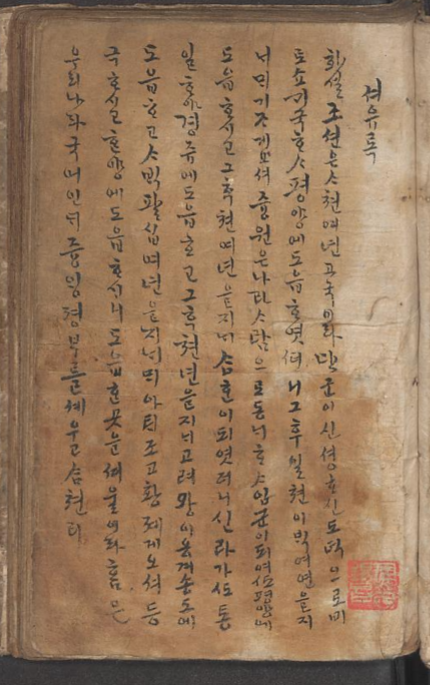 셔유록
화셜 조션은 ᄉᆞ쳔여년 고국이라 단군이 신셩ᄒᆞ신 도덕으로 비
ᄀᆡ국ᄒᆞᄉᆞ 평양에 도읍ᄒᆞ엿 그 후 일쳔이ᄇᆡᆨ여년을 지
기ᄌᆞ게셔 즁원 은나라 ᄉᆞ람으로 동ᄂᆡᄒᆞᄉᆞ 임군이 되여 ᄯᅩ 평양에
도읍ᄒᆞ시고 그 후 쳔여년을 지ᄂᆡ 삼한이 되엿더니 신라가 ᄯᅩ 통
일ᄒᆞ야 경쥬에 도읍ᄒᆞ고 그 후 쳔년을 지ᄂᆡ 고려왕이 송도에
도읍ᄒᆞ고 ᄉᆞᄇᆡᆨ팔십여년을 지ᄂᆡ 아 ᄐᆡ조고황뎨게오셔 등
극ᄒᆞ시고 한양에 도읍ᄒᆞ시니 도읍ᄒᆞᆫ 곳은 셔울이라
우리나라 국 즁앙 셰우고 삼쳔리